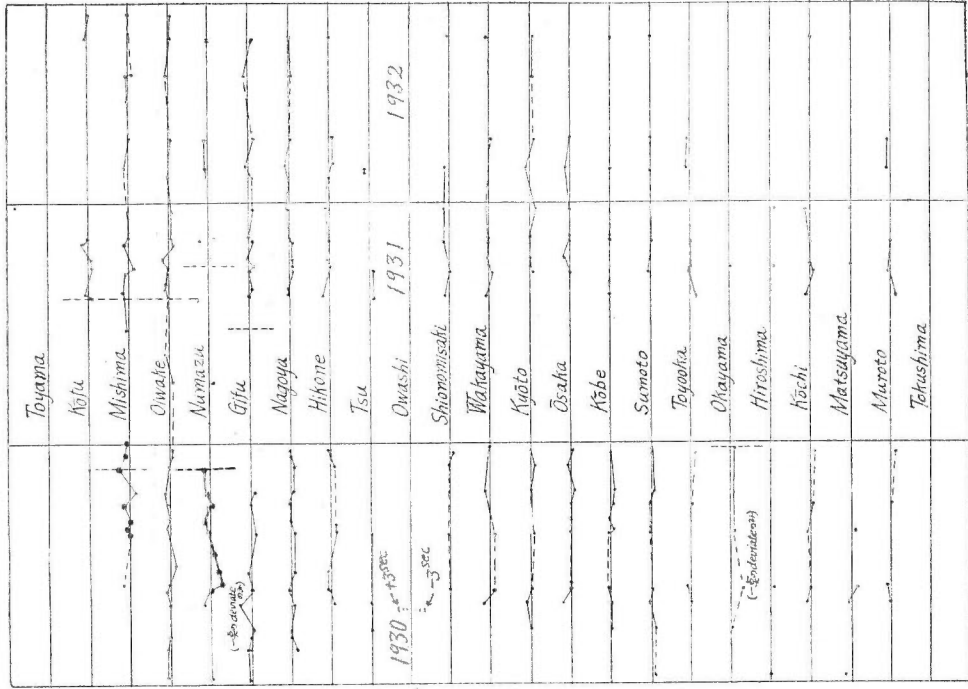 Toyama
Kōfu
Mishima
Oiwake
Numazu
Gifu
Nagoya
Hikone
Tsu
Owashi
Shionomisaki
Wakayama
Kyōto
Ōsaka
Kōbe
Sumoto
Toyooka
Okayama
Hiroshima
Kōchi
Matsuyama
Muroto
Tokushima
1930
1931
1932
+3sec
-3sec
deviate
deviate